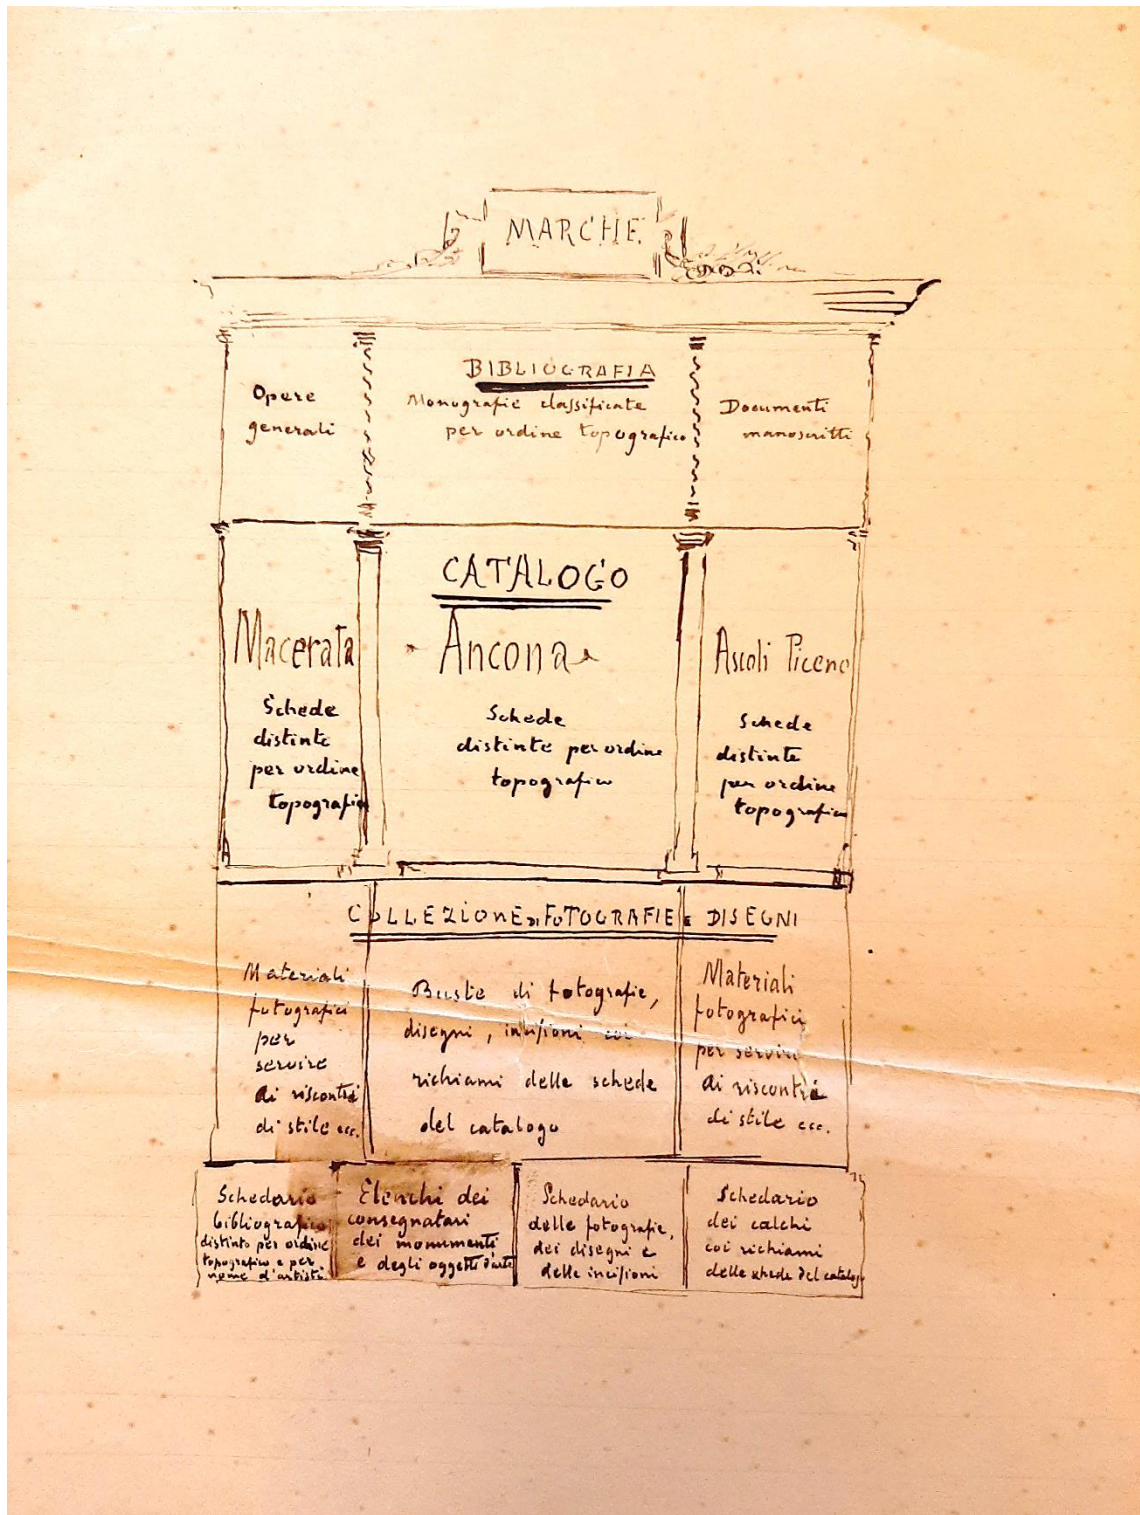 MARCHE
BIBLIOGRAFIA
Opere
generali
Monografie classificate
per ordine topografico
Documenti
manoscritti
CATALOGO
Macerata
Schede
distinte
per ordine
topografico
Ancona
Schede
distinte per ordine
topografico
Ascoli Piceno
Schede
distinte
per ordine
topografico
COLLEZIONE DI FOTOGRAFIE E DISEGNI
Materiali
fotografici
per
servire
di riscontri
di stile ecc.
Buste di fotografie,
disegni, incisioni coi
richiami delle schede
del catalogo
Materiali
fotografici
per servire
di riscontri
di stile ecc.
Schedario
bibliografico
distinto per ordine
topografico e per
nome d'artisti
Elenchi dei
consegnatari
dei monumenti
e degli oggetti d'arte
Schedario
delle fotografie,
dei disegni e
delle incisioni
Schedario
dei calchi
coi richiami
delle schede del catalogo